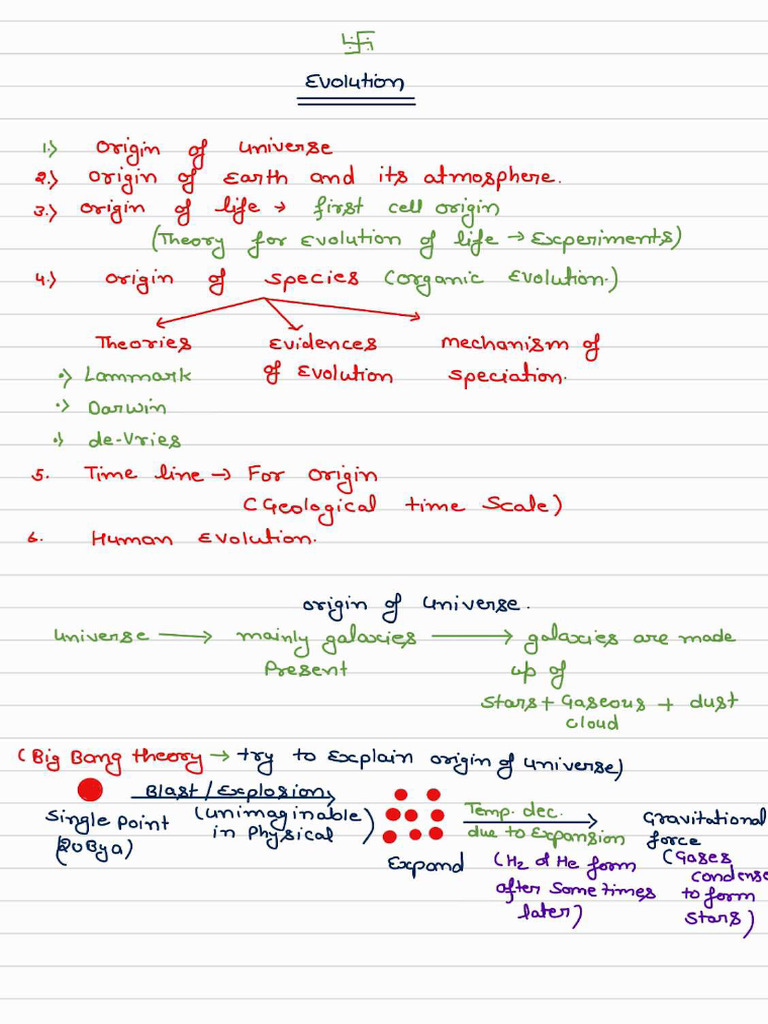 卐
Evolution
1.) Origin of universe
2.) Origin of Earth and its atmosphere.
3.) Origin of life → first cell origin
(Theory for Evolution of life → Experiments)
4.) Origin of species (organic Evolution.)
Theories Evidences mechanism of
•) Lammark of Evolution speciation.
•) Darwin
•) de-Vries
5. Time line → For origin
(Geological time Scale)
6. Human Evolution.
Origin of universe.
universe → mainly galaxies → galaxies are made
Present up of
stars + Gaseous + dust
cloud
(Big Bang theory → try to Explain origin of universe)
Blast / Explosion Temp. dec. Gravitational
Single Point (unimaginable due to Expansion force
(20Bya) in Physical) Expand (H2 & He form (Gases
condense
after some times to form
later) stars)